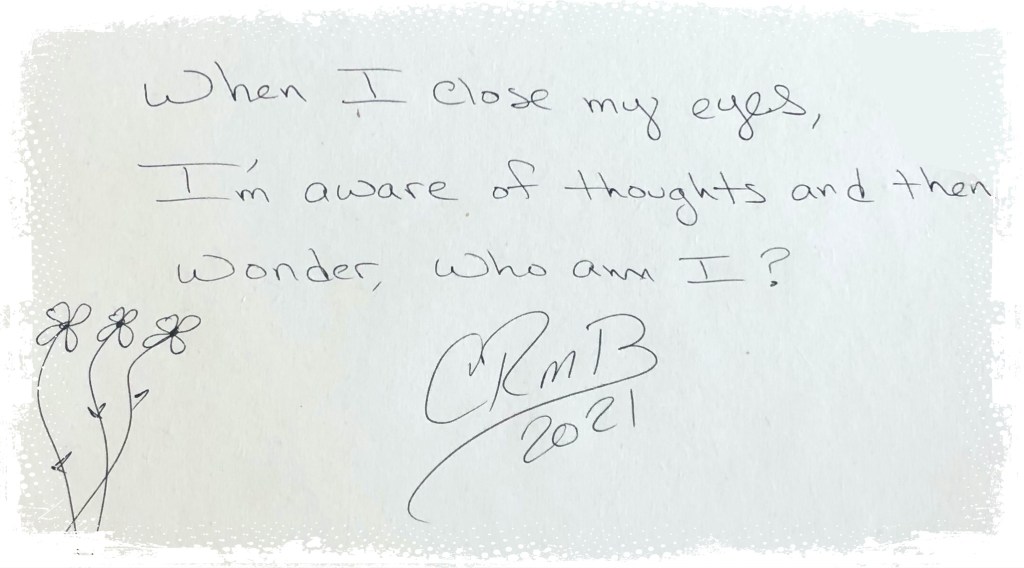 When I close my eyes,
I'm aware of thoughts and then
wonder, who am I?
CRMB
2021